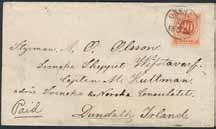 Styrman A. O. Olsson
Svenska Skeppet
Capten M. Hultman
adr Svenska o Norska Consulatet
Paid
Dundalk Irland
20